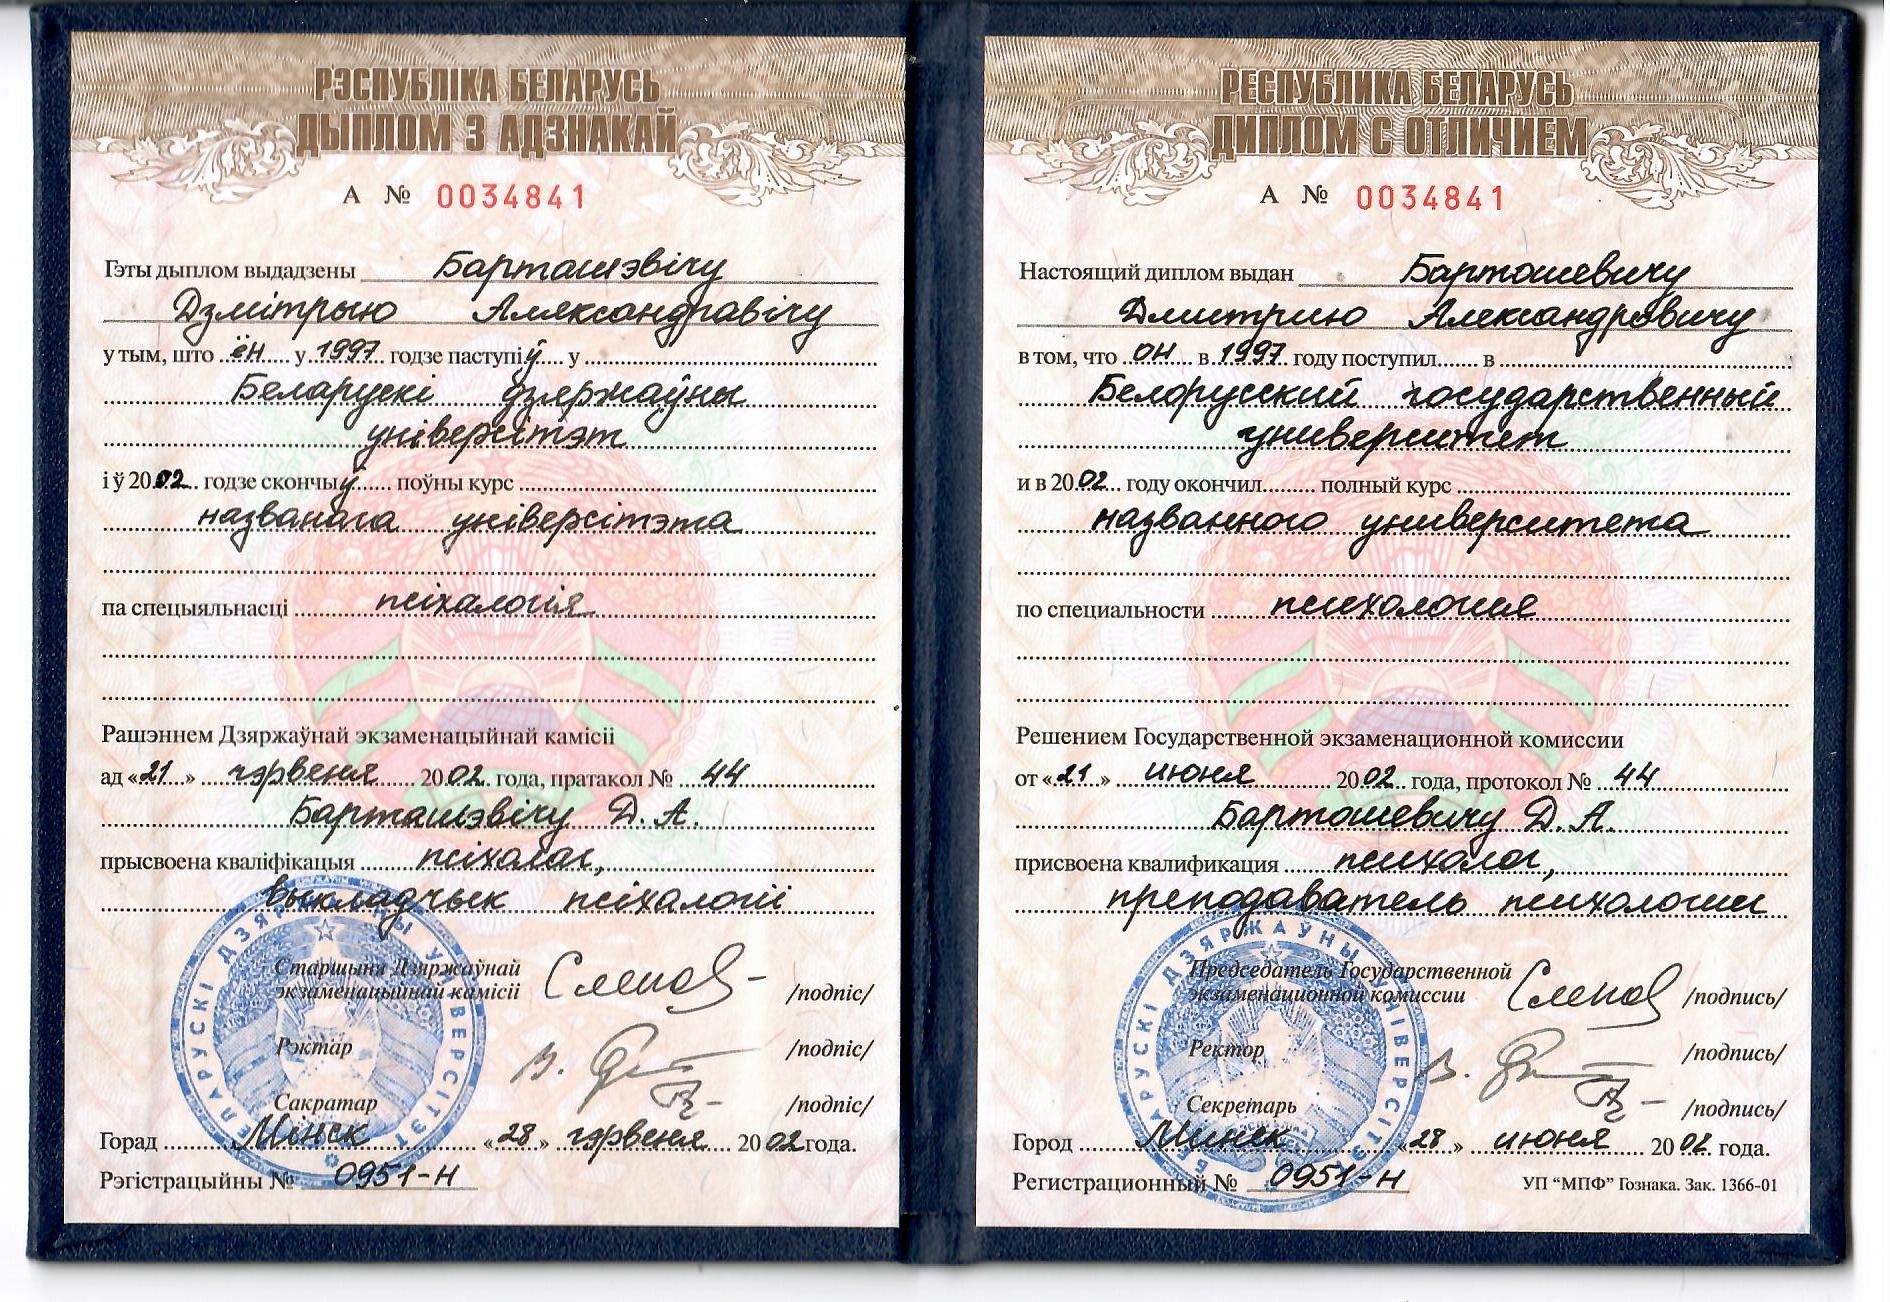 РЭСПУБЛІКА БЕЛАРУСЬ
ДЫПЛОМ З АДЗНАКАЙ
А № 0034841
Гэты дыплом выдадзены Барташэвічу
Дзмітрыю Аляксандравічу
у тым, што ён у 1997 годзе паступіў у
Беларускі дзяржаўны
універсітэт
і ў 2002 годзе скончыў поўны курс
названага універсітэта
па спецыяльнасці псіхалогія
Рашэннем Дзяржаўнай экзаменацыйнай камісіі
ад «21» чэрвеня 2002 года, пратакол № 44
Барташэвічу Д. А.
прысвоена кваліфікацыя псіхолаг,
выкладчык псіхалогіі
Старшыня Дзяржаўнай
экзаменацыйнай камісіі /подпіс/
Рэктар /подпіс/
Сакратар /подпіс/
Горад Мінск «28» чэрвеня 2002 года.
Рэгістрацыйны № 0951-Н
БЕЛАРУСКІ ДЗЯРЖАЎНЫ УНІВЕРСІТЭТ
РЕСПУБЛИКА БЕЛАРУСЬ
ДИПЛОМ С ОТЛИЧИЕМ
А № 0034841
Настоящий диплом выдан Бартошевичу
Дмитрию Александровичу
в том, что он в 1997 году поступил в
Белорусский государственный
университет
и в 2002 году окончил полный курс
названного университета
по специальности психология
Решением Государственной экзаменационной комиссии
от «21» июня 2002 года, протокол № 44
Бартошевичу Д. А.
присвоена квалификация психолог,
преподаватель психологии
Председатель Государственной
экзаменационной комиссии /подпись/
Ректор /подпись/
Секретарь /подпись/
Город Минск «28» июня 2002 года.
Регистрационный № 0951-Н
УП “МПФ” Гознака. Зак. 1366-01
БЕЛАРУСКІ ДЗЯРЖАЎНЫ УНІВЕРСІТЭТ